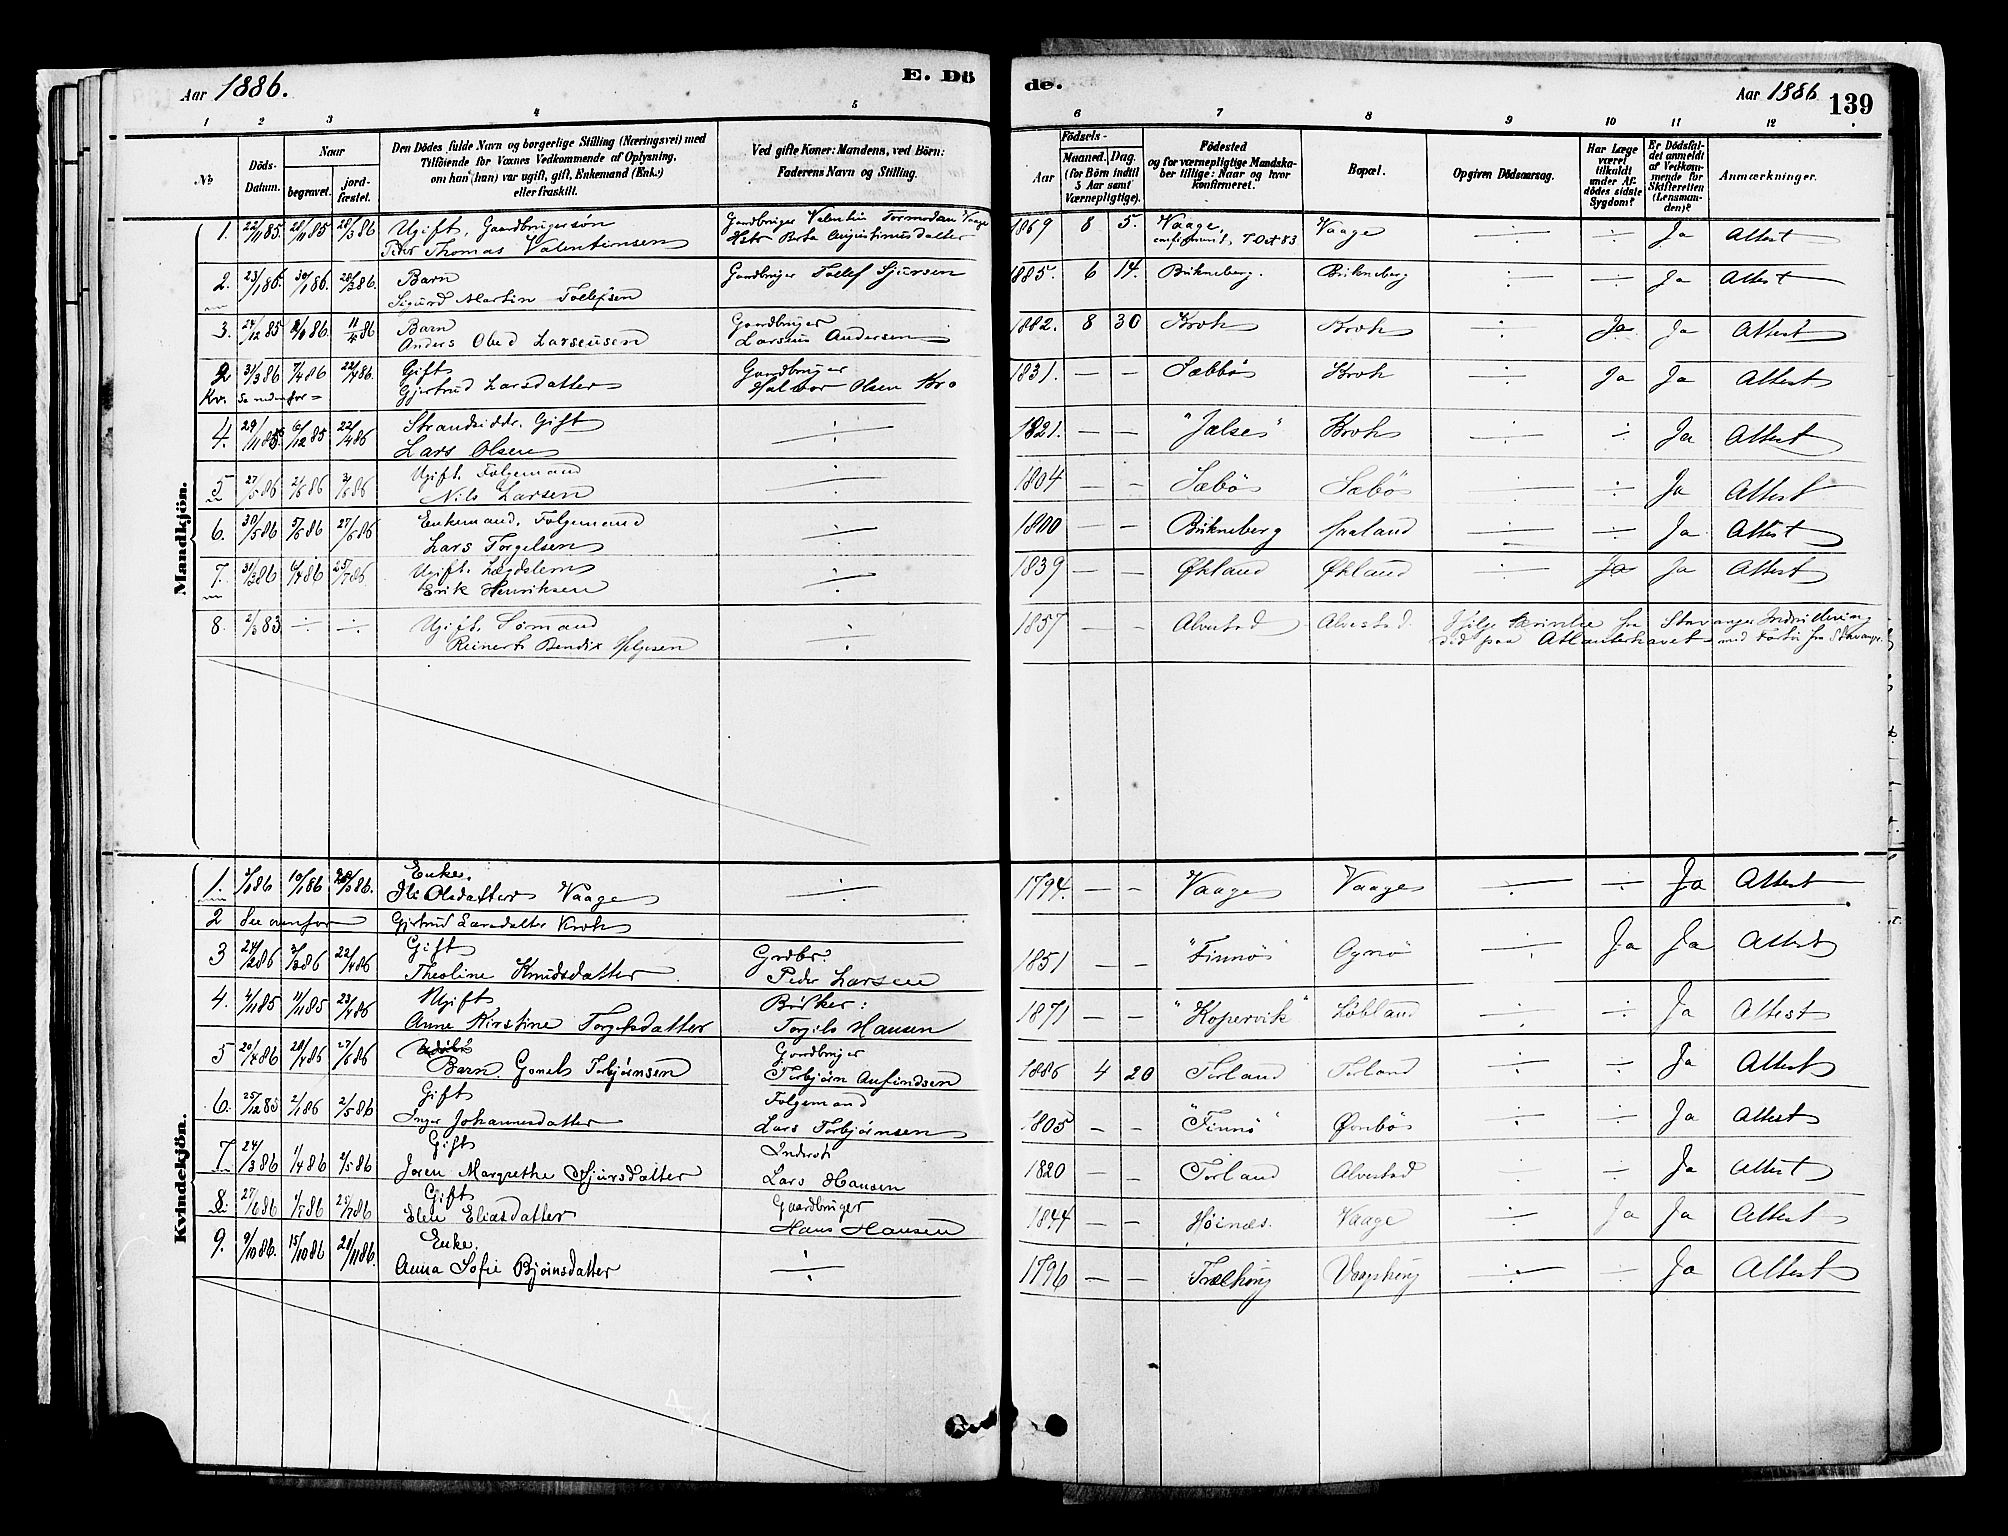 Aar 1886.
E. Dö
de.
Aar 1886
139
1 2 3 4 5 6 7 8 9 10 11 12
No
Döds-Datum.
Naar
begravet.
jord-fæstet.
Den Dödes fulde Navn og borgerlige Stilling (Næringsvei) med
Tilföiende for Voxnes Vedkommende af Oplysning,
om han (hun) var ugift, gift, Enkemand (Enke)
eller fraskilt.
Ved gifte Koner: Mandens, ved Börn:
Faderens Navn og Stilling.
Födsels-
Aar
Maaned. Dag.
(for Börn indtil
5 Aar samt
Værnepligtige).
Födested
og for værnepligtige Mandska-
ber tillige: Naar og hvor
konfirmeret.
Bopæl.
Opgiven Dödsaarsag.
Har Læge
været
tilkaldt
under Af-
dödes sidste
Sygdom?
Er Dödsfal-
det anmeldt
af Vedkom-
mende for
Skifteretten
(Lensman-
den)?
Anmærkninger.
Mandkjön.
1. 22/11 85. 28/11 85 28/3 86 Ugift, Gaardbrugersøn Gaardbruger Valentin Tormodsen Vaage 1869 8 5. Vaage, Vaage ÷ ÷ Ja Attest
Peder Thomas Valentinsen Berta Augustinusdatter 7 Oct 83
2. 23/1 86. 30/1 86. 28/3 86. Barn Gaardbruger Tollef Sjursen 1885. 6 14. Bukneberg. Bukneberg ÷ ÷ Ja Attest
Sigurd Martin Tollefsen
3. 24/12 85 86. 11/4 86 Barn Gaardbruger 1882. 8 30 Kroh Kroh ÷ Ja Ja Attest
Anders Obed Larseusen Larseus Andersen
2 31/3 86 7/4 86 22/4 86. Gift Gaardbruger 1831. — — Sæbbø Kroh Ja Ja Attest
Kv. Se nedenfor = Gjertrud Larsdatter Halvor Olsen Kro
4. 29/11 85. 6/12 85 22/4 86 Strandsidder. Gift ÷ 1821. — — "Jælse" Kroh ÷ ÷ Ja Attest
Lars Olsen
5 27/5 86 2/6 86 86 Ugift. Folgemand ÷ 1804 — — Sæbø Sæbø ÷ ÷ Ja Attest
Nils Larsen
6. 30/5 86 5/6 86 27/6 86 Enkemand, Folgemand ÷ 1800 — — Bukneberg Haaland ÷ ÷ Ja Attest
Lars Torgelsen
7. 31/3 86 6/4 86 25/7 86 Ugift. Lægdslem ÷ 1839 — — Økland Økland ÷ Ja Ja Attest
Erik Henriksen
8. 2/3 83. ÷ ÷ Ugift Sømand ÷ 1857 Alvestad Alvestad. Ifølge fra Stavanger
Reinert Bendix Helgesen død paa Atlanterhavet med fra Stavanger
Kvindekjön.
1. 86 10/1 86 28/3 86. Enke. ÷ 1794. — — Vaage Vaage ÷ ÷ Ja Attest
Olsdatter Vaage
2 See ovenfor Gjertrud Larsdatter Kroh
3 24/2 86 3/3 86 22/4 86 Gift Grdbr 1851 — — "Finnø" Ognø ÷ Ja Ja Attest
Theoline Knudsdatter Peder Larsen
4. 4/11 85 11/11 85 23/4 86 Ugift 1871 — — "Kopervik" Løbland ÷ ÷ Ja Attest
Anne Kirstine Torgilsdatter Torgils Hansen
5 20/4 86 28/4 86 27/6 86 Gaardbruger 1886 4 20 Torland Torland ÷ ÷ Ja Attest
Barn. Torbjørnsen Torbjørn Anfindsen
6. 25/12 85 2/1 86 2/5 86 Gift Folgemand 1805 — — "Finnø" Øvrebø ÷ ÷ Ja Attest
Inger Johannesdatter Lars Torbjørnsen
7 24/3 86 1/4 86 2/5 86 Gift Inderst 1820 — Torland Alvestad ÷ ÷ Ja Attest
Joren Margrethe Sjursdatter Lars Hansen
8. 27/ 86 86 25/7 86 Gift Gaardbruger 1844 — — Høinæs. Vaage ÷ Ja Ja Attest
Elen Eliasdatter Hans Hansen
9. 9/10 86. 15/10 86 28/11 86. Enke. ÷ 1796 — — ÷ ÷ Ja Attest
Anna Sofie Bjørnsdatter